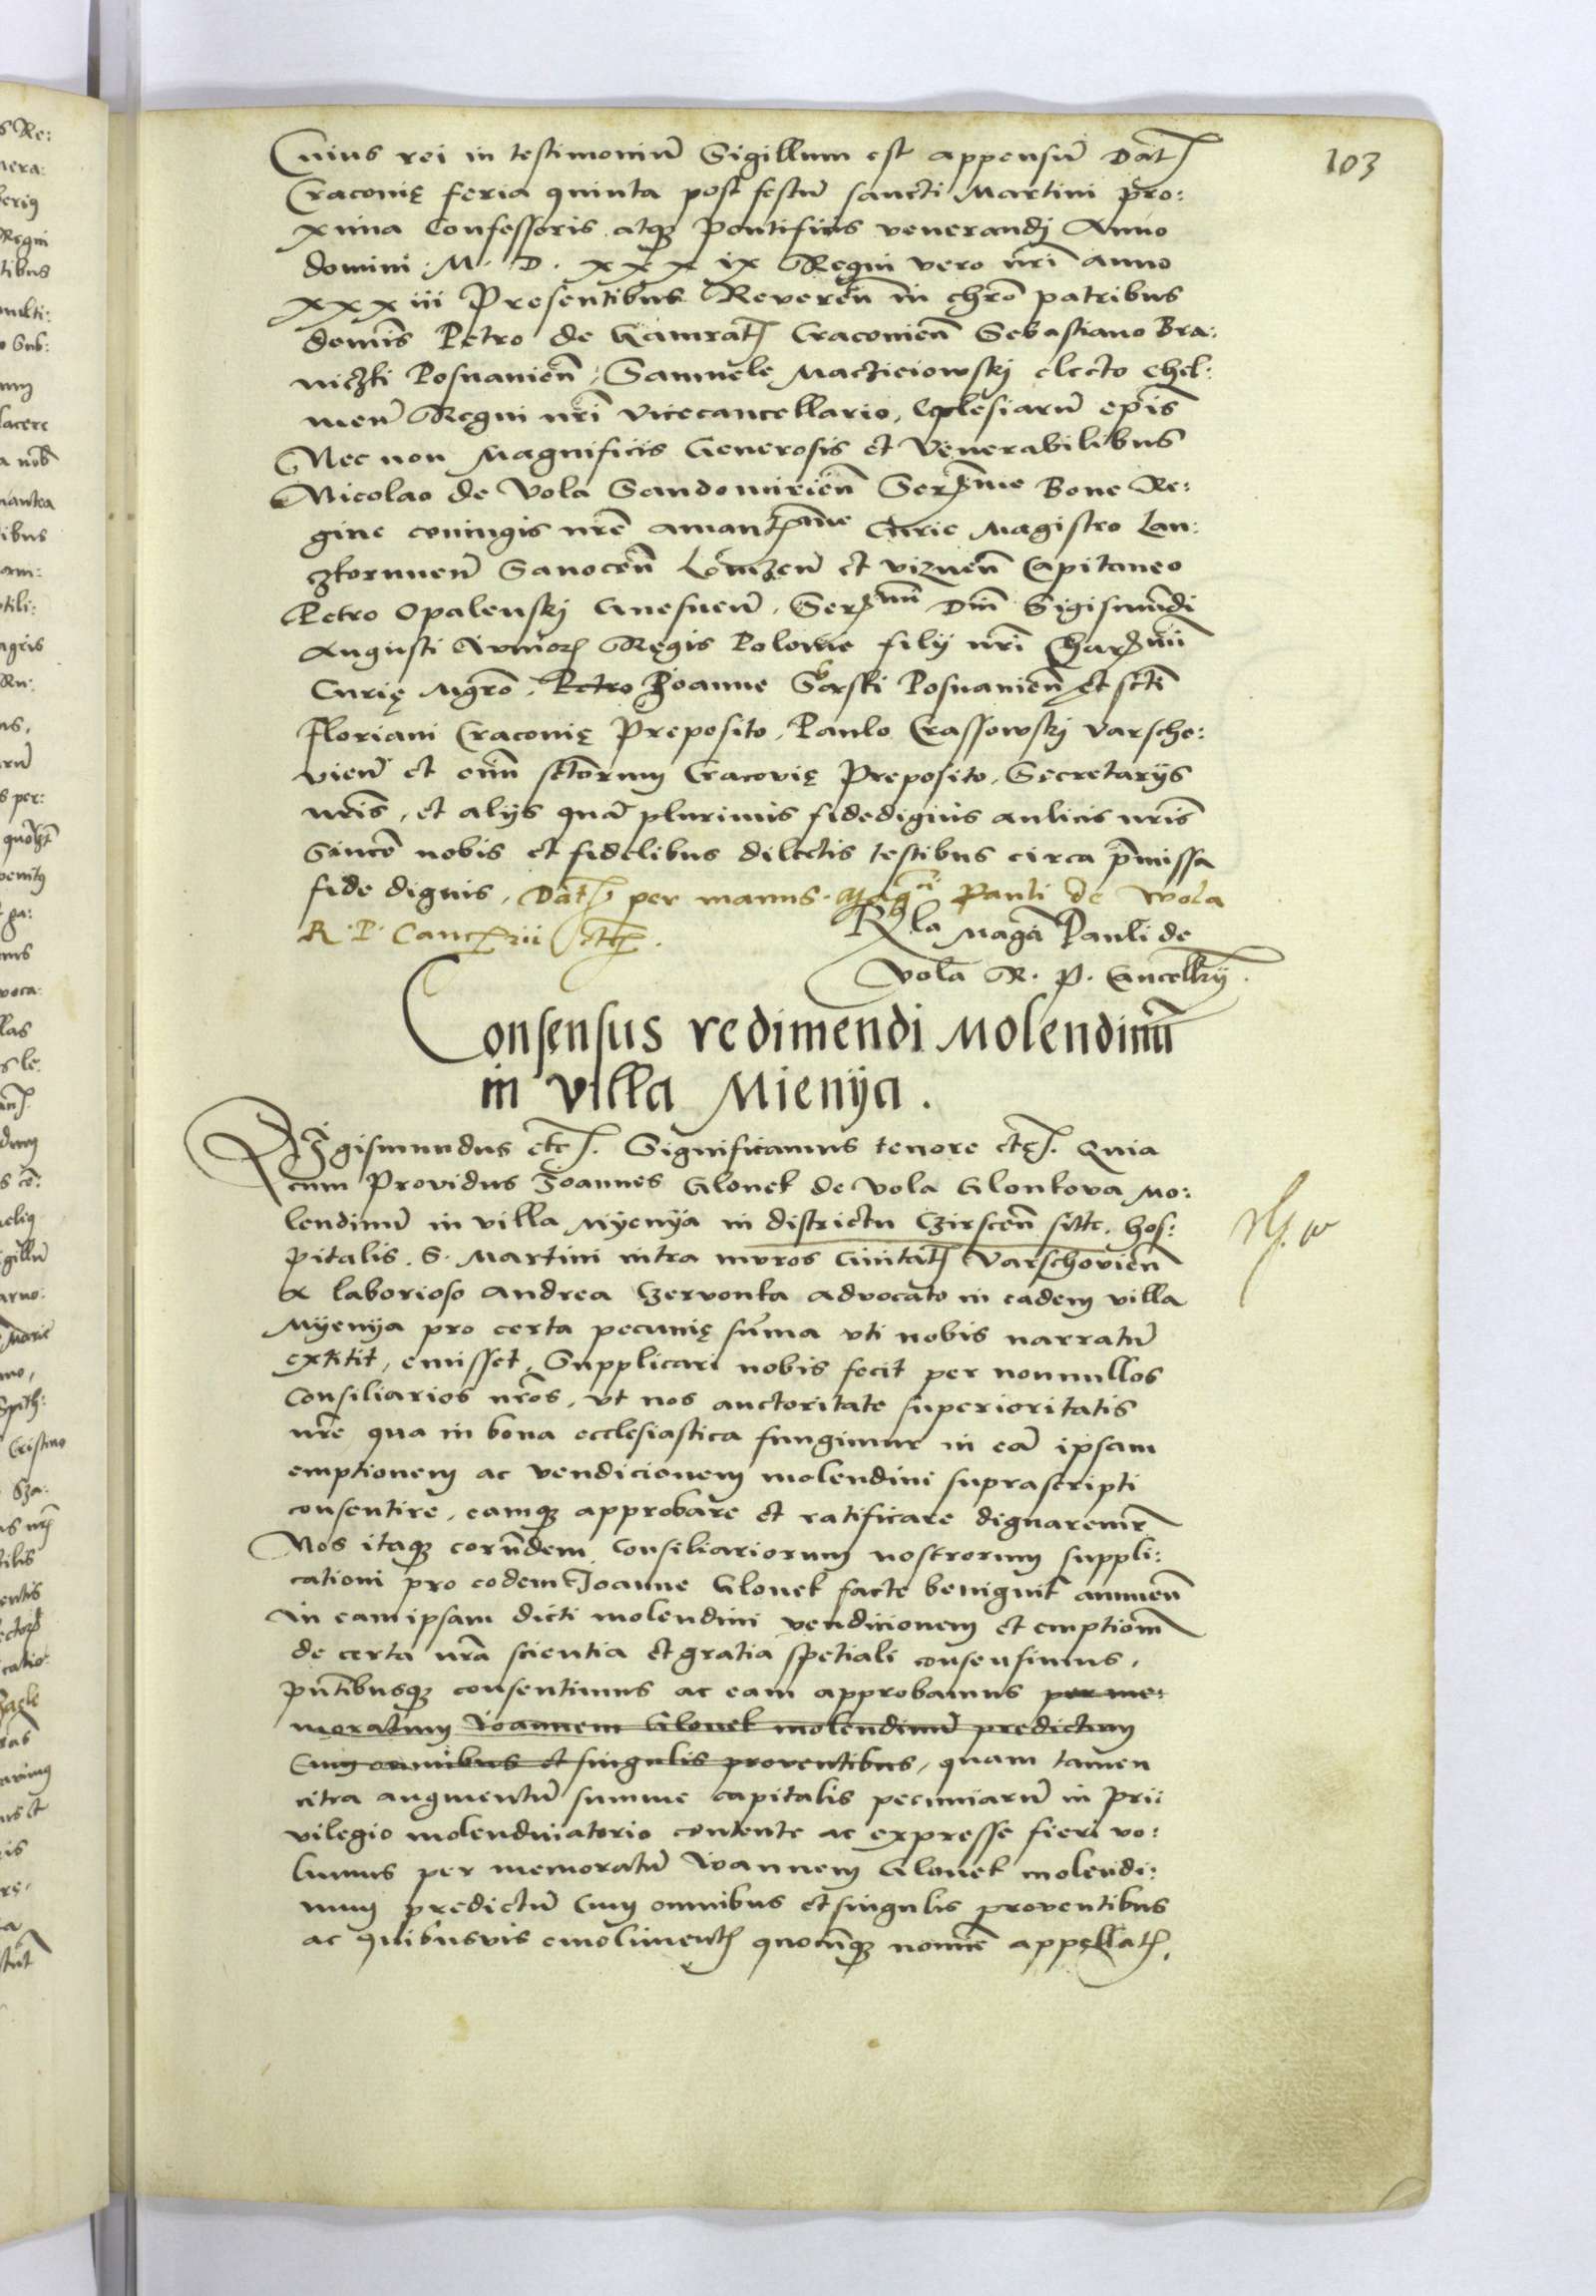 103
Cuius rei in testimoniũ Sigillum est appensũ Dat
Craconię feria quinta post festũ sancti Martini pro:
xima Confessoris atq3 pontificis venerandj Anno
domini . M . D . xxxix Regni vero nr̃i anno
xxxiii Presentibus Reveren̄ in chr̃o patribus
domĩs Petro de Gamrat Craconien̄ Sebastiano Bra:
niczki Posnanien̄, Samuele Maczieiowskj electo Chel:
men̄ Regni nr̃i Vicecancellario, Ecclesiarũ ep̃is
Nec non Magnificis Generosis et Venerabilibus
Nicolao de Vola Sandomirien̄ Serme Bone Re:
gine coniugis nr̃e amantme Curie Magistro Lan:
czkorunen̄ Sanocen̄ Lomzen̄ et viznen̄ Capitaneo
Petro Opalenskj Gnesnen̄, Sermi Dn̄i Sigismũdi
Augusti Iunior Regis Polonie filij nr̃i Charmi
Curię Mgr̃o, Petro Joanne Gorski Posnanien̄ et sc̃ti
Floriani Craconię Preposito, Paulo Crassowskj Varscho:
vien̄ et om̃n sc̃torum Cracovię Preposito, Secretarijs
nr̃is, et alijs quã plurimis fidedignis aulicis nr̃is
Sincẽ nobis et fidelibus dilectis testibus circa p̃missa
fide dignis, Dat per manus Mag͡ci Pauli de Wola
R. P. Cancrii etc.
Rla Mag͡ci Pauli de
Vola R. P. Cancellrij.
Consensus redimendi Molendinũ
in villa Mienija.
Sigismundus etc. Significamus tenore etc. Quia
cum Providus Joannes Glouek de Vola Glonkova Mo:
lendinũ in villa Mijenija in districtu Czirscen̄ sitte, hos:
pitalis S. Martini intra muros Civitat Varschovien̄
ex laborioso Andrea Czervonka advocato in eadem villa
Mijenija pro certa pecunię sũma uti nobis narratũ
extitit, emisset, Supplicari nobis fecit per nonnullos
Consiliarios nr̃os, ut nos auctoritate superioritatis
nr̃e qua in bona ecclesiastica fungimur in eã ipsam
emptionem ac vendicionem molendini suprascripti
consentire, eamq3 approbare et ratificare dignaremr̃
Nos itaq3 eorũdem Consiliariorum nostrorum suppli:
cationi pro eodem Joanne Glouek facte benignit̃ annuen̄
In eam ipsam dicti molendini vendicionem et emptionẽ
de certa nr̃a scientia et gratia spetiali consensimus,
pñtibusq3 consentimus ac eam approbamus per me:
moratum Joannem Glouek molendinũ predictum
Cum omnibus et singulis proventibus, quam tamen
citra augmentũ summe capitalis pecuniarũ in Pri:
vilegio molendinatorio contente ac expresse fieri vo:
lumus per memoratũ Joannem Glouek molendi:
num predictũ Cum omnibus et singulis proventibus
ac quibusvis emoliment quocũq3 nomĩe appellat,